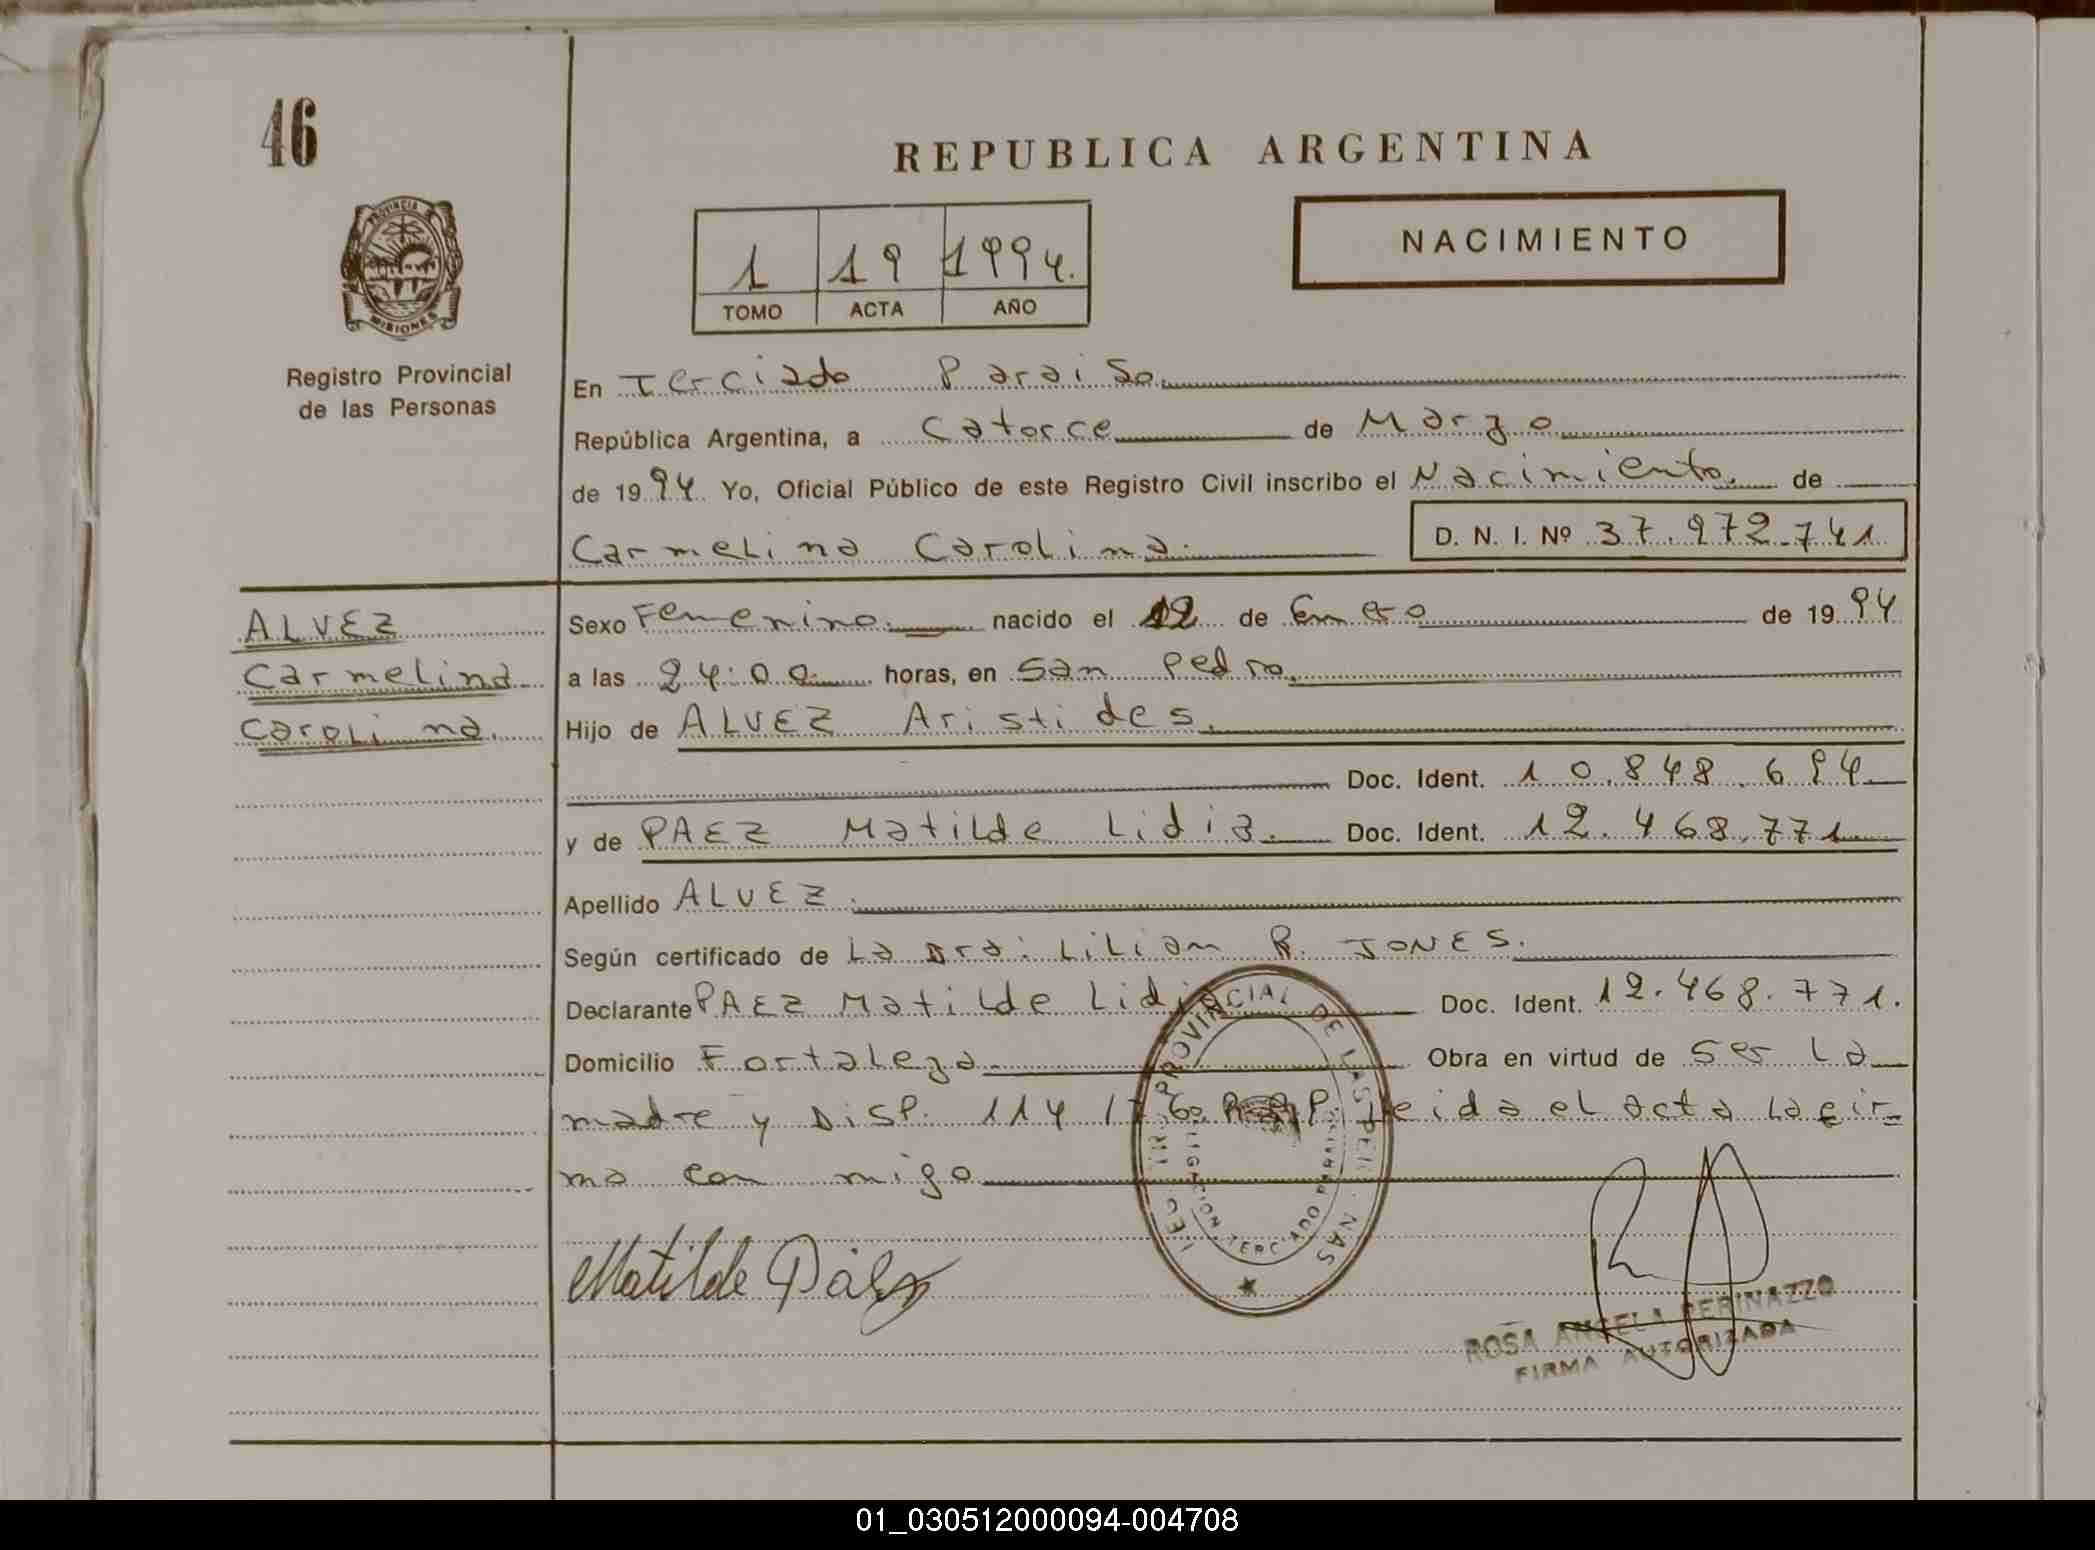 46
REPUBLICA ARGENTINA
PROVINCIA DE
MISIONES
Registro Provincial
de las Personas
1 19 1994.
TOMO ACTA AÑO
NACIMIENTO
En Terciado Paraiso.
República Argentina, a Catorce de Marzo
de 1994 Yo, Oficial Público de este Registro Civil inscribo el Nacimiento. de
Carmelina Carolina. D. N. I. Nº 37.972.741
ALVEZ
Carmelina
Carolina.
Sexo Femenino. nacido el 12 de Enero de 1994
a las 24:00 horas, en San Pedro.
Hijo de ALVEZ Aristides.
Doc. Ident. 10.848.694
y de PAEZ Matilde Lidia. Doc. Ident. 12.468.771
Apellido ALVEZ.
Según certificado de La Dra: Lilian R. JONES.
Declarante PAEZ Matilde Lidia Doc. Ident. 12.468.771.
Domicilio Fortaleza Obra en virtud de Ser La
madre y Disp. 114 Leida el acta La fir=
ma con migo
PROVINCIAL DE LAS
Matilde Páez
ROSA ANGELA PERINAZZO
FIRMA AUTORIZADA
01_030512000094-004708